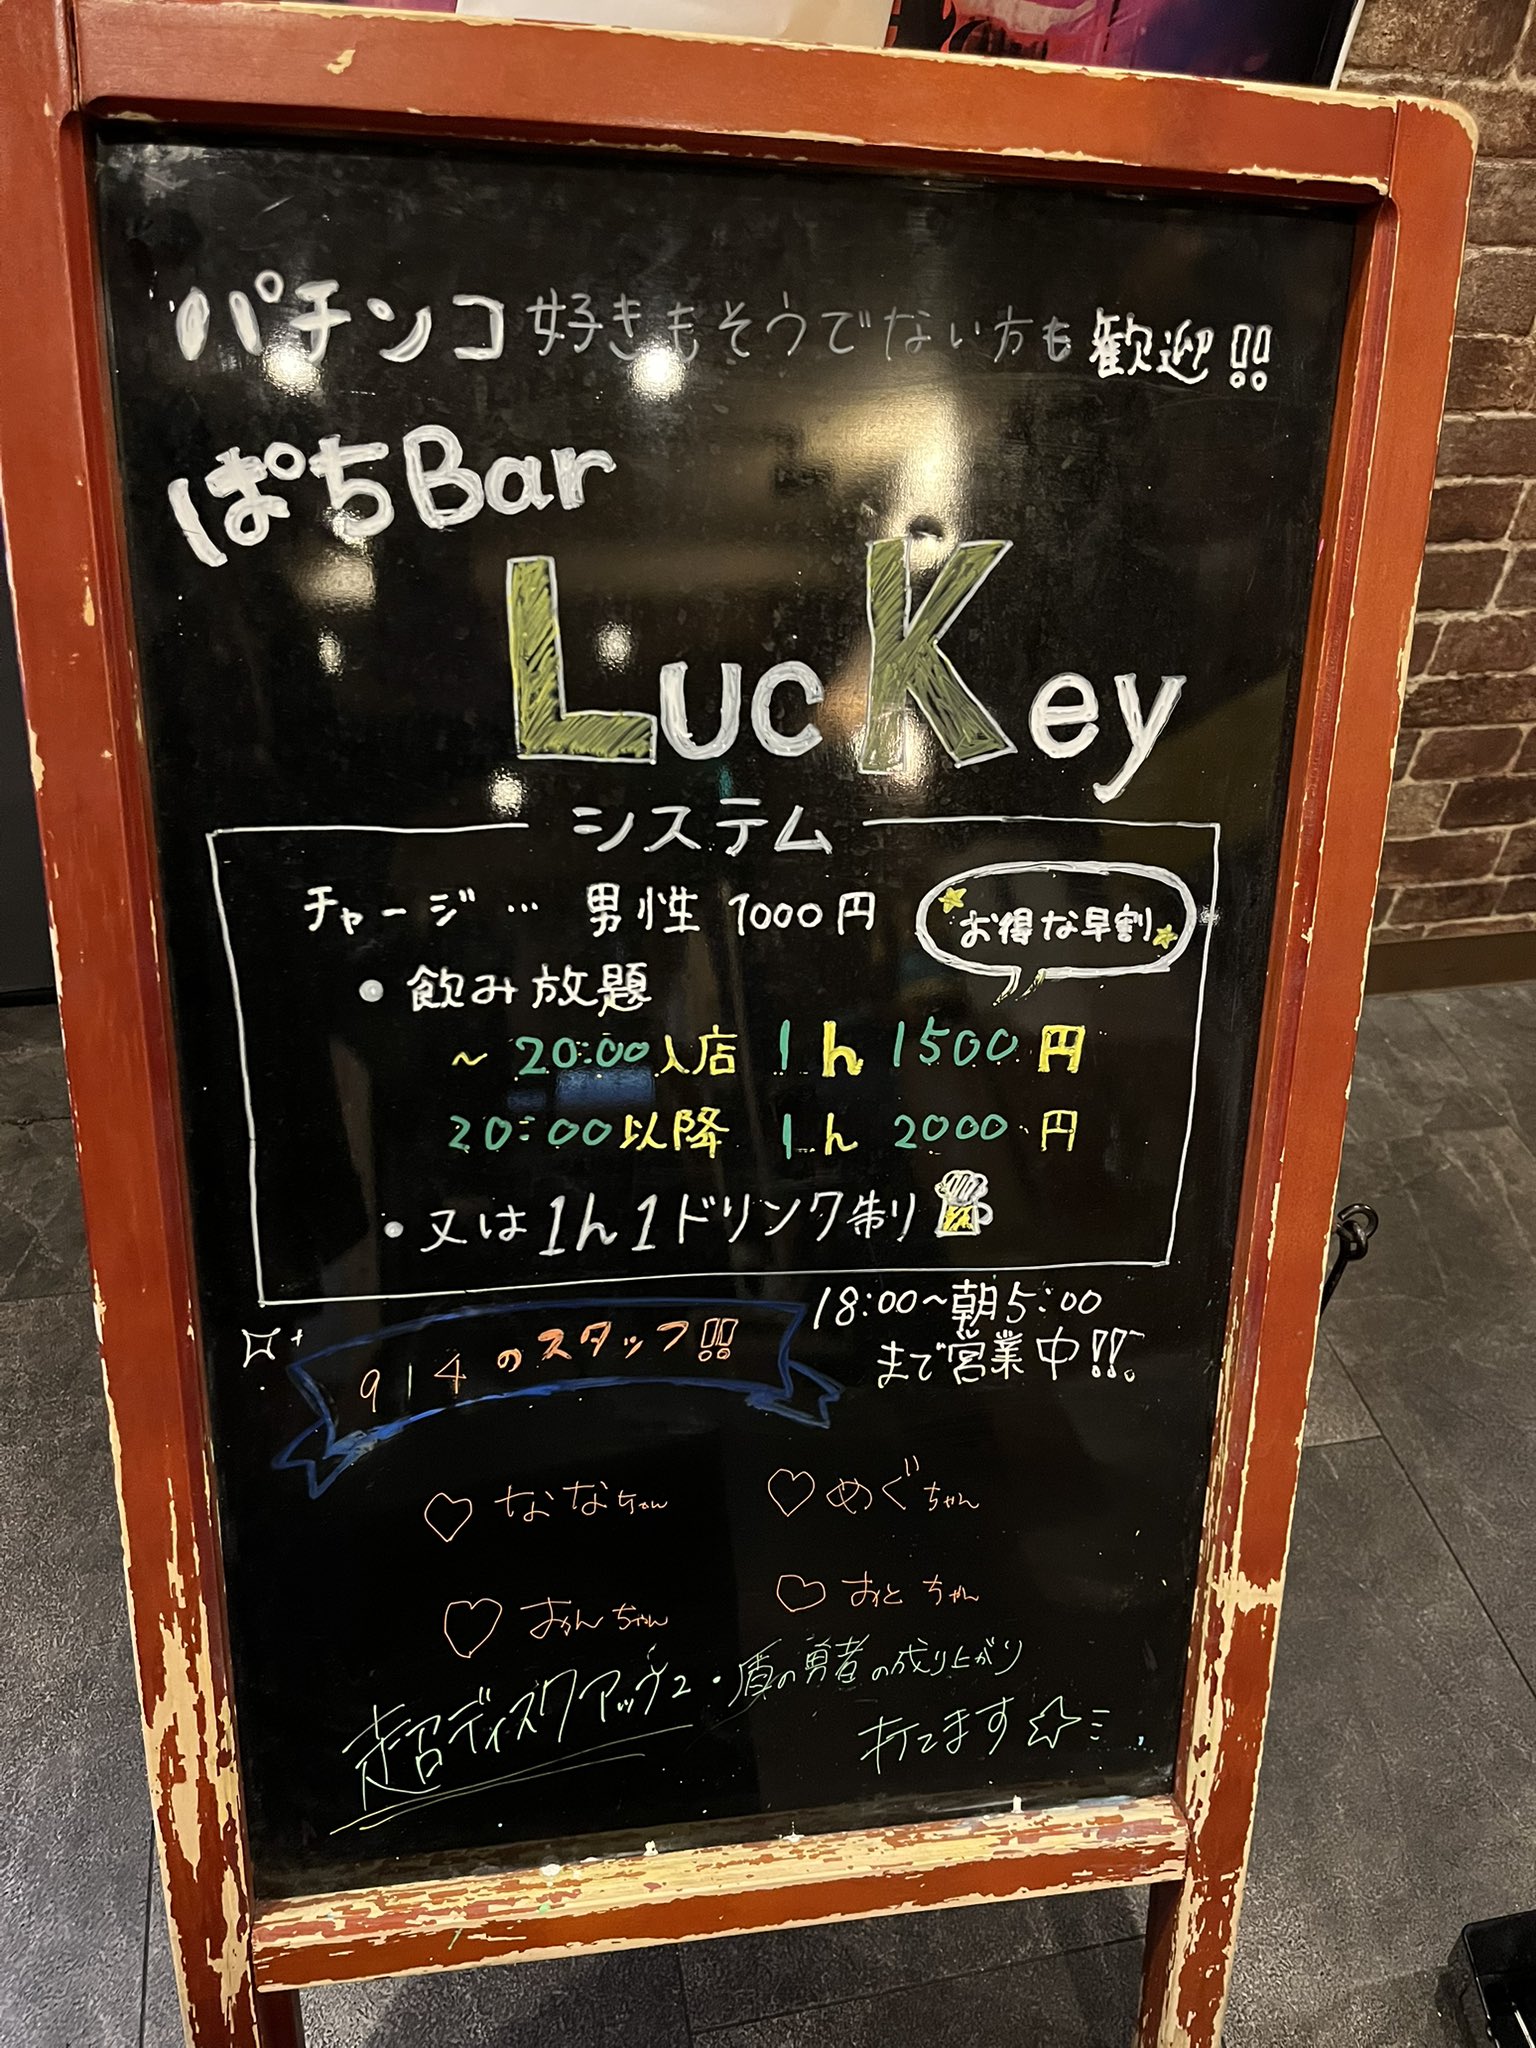 パチンコ好きもそうでない方も歓迎!!
ぱちBar
LucKey
システム
チャージ… 男性 1000円
お得な早割
・飲み放題
～20:00入店 1h 1500円
20:00以降 1h 2000円
・又は1h1ドリンク制
18:00～朝5:00
まで営業中!!
914のスタッフ!!
♡ななちゃん ♡めぐちゃん
♡おかんちゃん ♡おとちゃん
超ディスクアップ2・盾の勇者の成り上がり
打てます☆